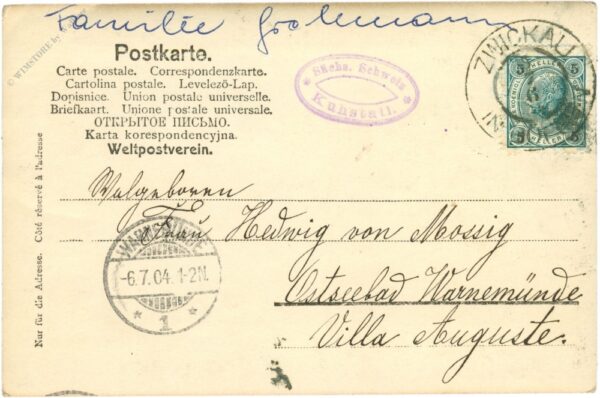 Familie Grohmann
Postkarte.
Carte postale. Correspondenzkarte.
Cartolina postale. Levelező-Lap.
Dopisnice. Union postale universelle.
Briefkaart. Unione postale universale.
ОТКРЫТОЕ ПИСЬМО.
Karta korespondencyjna.
Weltpostverein.
Sächs. Schweiz
Kuhstall.
ZWICKAU
IN
5 HELLER 5
5 HELLER 5
Walgeboren
Frau Hedwig von Mossig
Ostseebad Warnemünde
Villa Auguste.
WARNEMÜNDE
-6.7.04. 1-2N.
* 1 *
Nur für die Adresse. Côté réservé à l'adresse
© WIMSTORE by